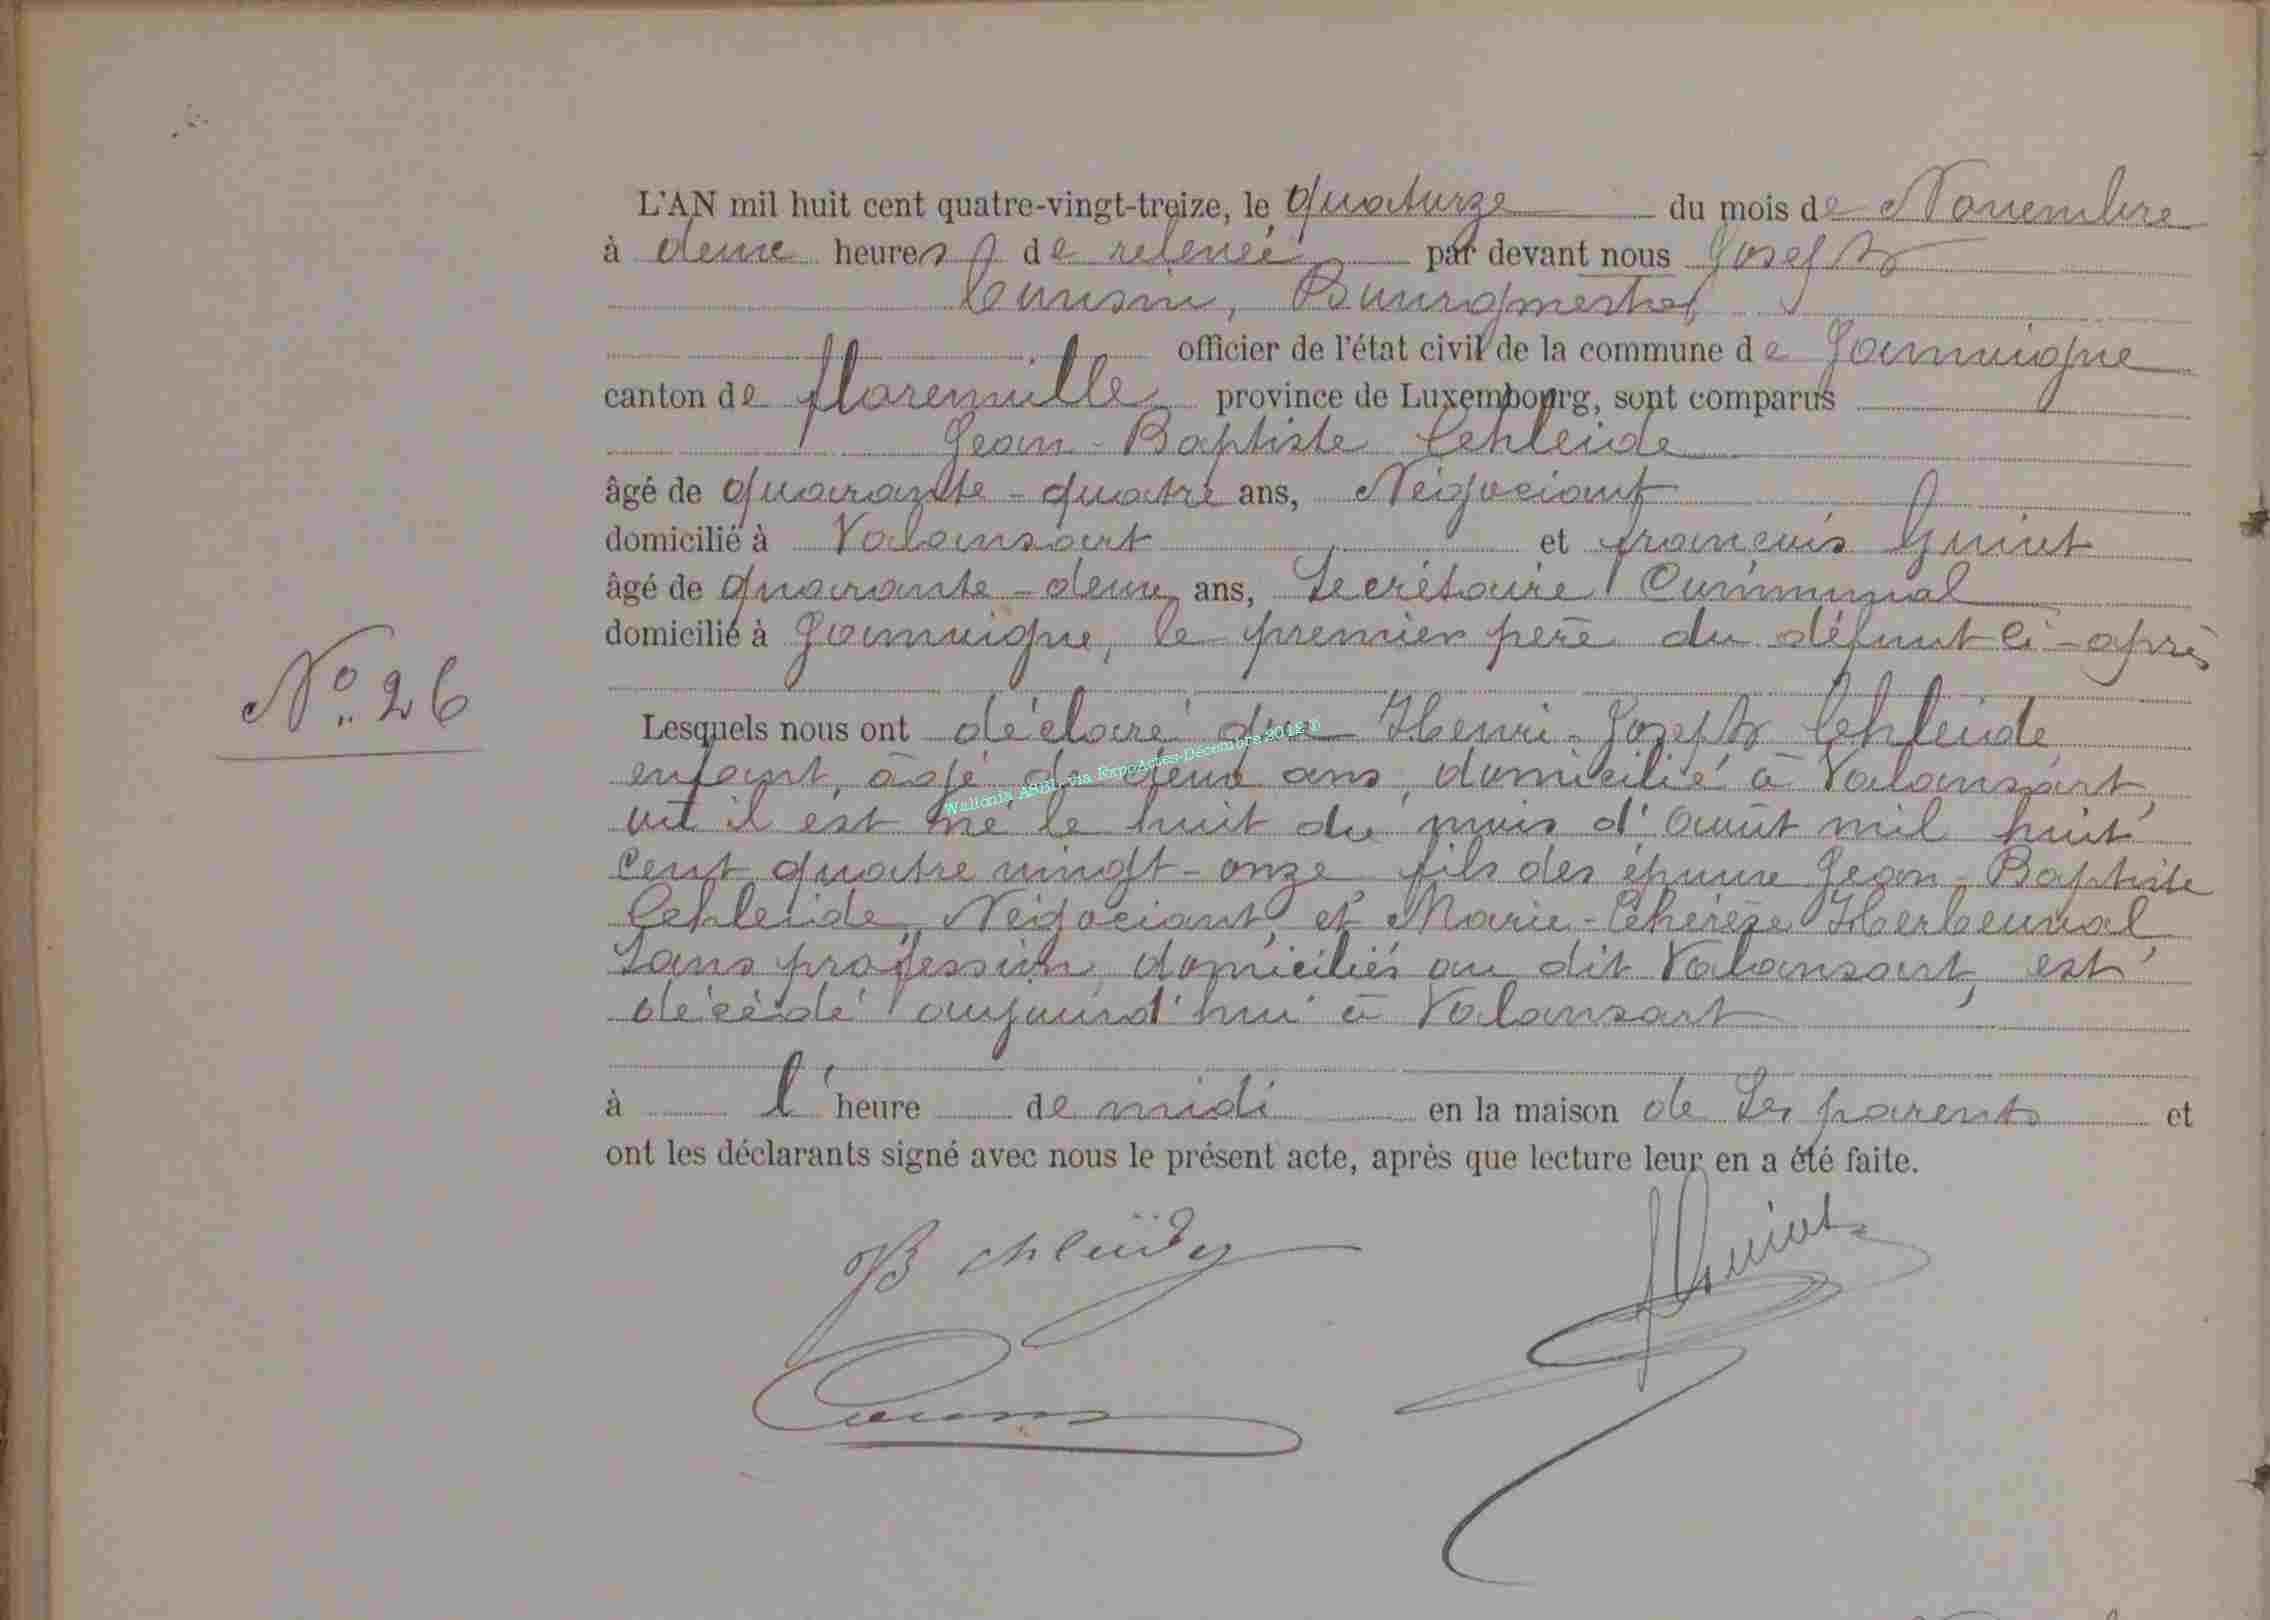 L'AN mil huit cent quatre-vingt-treize, le quatorze du mois de Novembre
à deux heures de relevée par devant nous Joseph
Cousin, Bourgmestre,
officier de l'état civil de la commune de Jamoigne
canton de florenville province de Luxembourg, sont comparus
Jean-Baptiste Schleide
âgé de quarante-quatre ans, Négociant
domicilié à Valansart et françois Guiot
âgé de quarante-deux ans, Secrétaire Communal
domicilié à Jamoigne, le premier père du défunt ci-après
N° 26
Lesquels nous ont déclaré que Henri-Joseph Schleide
enfant, âgé de deux ans, domicilié à Valansart,
Wallonia ASBL, via ExpoActes-Décembre 2012 ©
où il est né le huit du mois d'août mil huit
cent quatre vingt-onze fils des époux Jean-Baptiste
Schleide, Négociant, et Marie-Thérèse Herbeuval,
Sans profession, domiciliés au dit Valansart, est
décédé aujourd'hui à Valansart
à l'heure de midi en la maison de Ses parents et
ont les déclarants signé avec nous le présent acte, après que lecture leur en a été faite.
Guiot